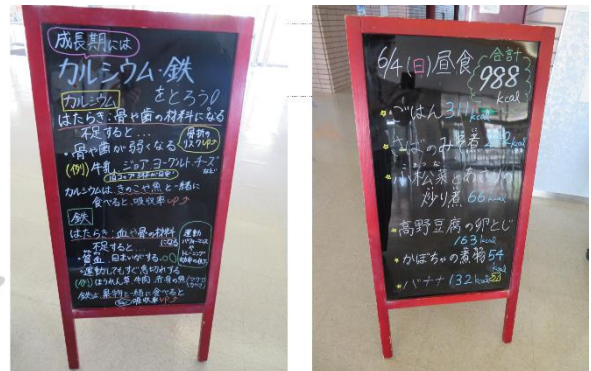 成長期には
カルシウム・鉄
をとろう
カルシウム
はたらき:骨や歯の材料になる
不足すると…
・骨や歯が弱くなる
骨折の
リスクUP
(例)牛乳、ジョア ヨーグルト・チーズ
など
カルシウムはきのこや魚と一緒に
食べると吸収率UP
鉄
はたらき:血や骨の材料
になる
不足すると…
・貧血 目まいがする
・運動してもすぐ息切れする
運動
パフォーマンス
トレーニング
(例)ほうれん草 牛肉 赤身の魚
鉄は、果物と一緒に食べると
吸収率UP
6/4(日)昼食
合計
988
kcal
・ごはん 311kcal
さばのみそ煮
kcal
小松菜とあさりの
炒り煮 66kcal
高野豆腐の卵とじ
163kcal
かぼちゃの煮物 54
kcal
バナナ 132kcal